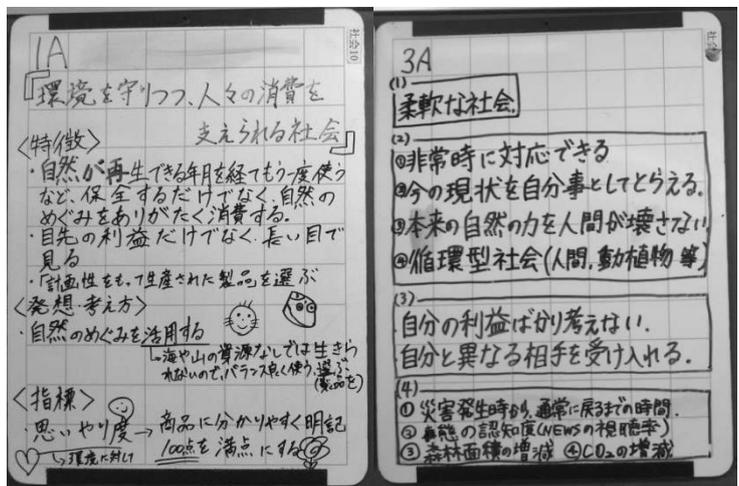 1A
社会10
『環境を守りつつ、人々の消費を
支えられる社会』
<特徴>
・自然が再生できる年月を経てもう一度使う
など、保全するだけでなく、自然の
めぐみをありがたく消費する。
・目先の利益だけでなく、長い目で
見る
・計画性をもって生産された製品を選ぶ
<発想・考え方>
・自然のめぐみを活用する
海や山の資源なしでは生きら
れないので、バランス良く使う、選ぶ
(製品を)
<指標>
・思いやり度→商品に分かりやすく明記
→環境に対して
100点を満点にする
3A
社会
(1)
柔軟な社会
(2)
①非常時に対応できる
②今の現状を自分事としてとらえる。
③本来の自然の力を人間が壊さない
④循環型社会(人間,動植物 等)
(3)
自分の利益ばかり考えない.
自分と異なる相手を受け入れる.
(4)
① 災害発生時から、通常に戻るまでの時間.
② の認知度(NEWSの視聴率)
③ 森林面積の増減 ④CO2の増減